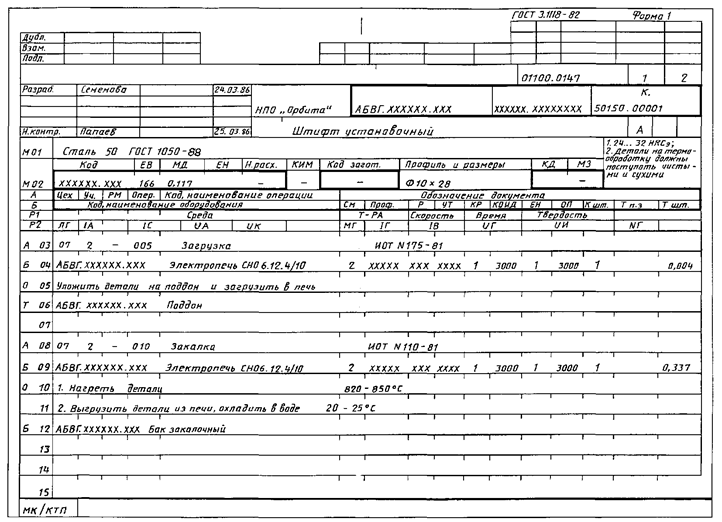 ГОСТ 3.1118-82 Форма 1
Дубл.
Взам.
Подл.
01100.0147 1 2
Разраб. Семенова 24.03.86
НПО „Орбита" АБВГ.XXXXXX.XXX XXXXXX.XXXXXXXX К. 50150.00001
Н.контр. Папаев 25.03.86 Штифт установочный А
М 01 Сталь 50 ГОСТ 1050-88
1. 24... 32 HRCэ;
2. Детали на термо-
обработку должны
поступать чисты-
ми и сухими
Код ЕВ МД ЕН Н.расх. КИМ Код загот. Профиль и размеры КД МЗ
М 02 XXXXXX.XXX 166 0.117 – – – Ф10×28 – –
А Цех Уч. РМ Опер. Код, наименование операции Обозначение документа
Б Код, наименование оборудования СМ Проф. Р УТ КР КОИД ЕН ОП К шт. Т п-з Т шт.
Р1 Среда Т-РА Скорость Время Твердость
Р2 ЛГ IА IС UА UК МГ IГ IВ UГ UИ NГ
А 03 07 2 – 005 Загрузка ИОТ N175-81
Б 04 АБВГ.XXXXXX.XXX Электропечь СНО 6.12.4/10 2 XXXXX XXX XXXX 1 3000 1 3000 1 0,004
О 05 Уложить детали на поддон и загрузить в печь
Т 06 АБВГ.XXXXXX.XXX Поддон
07
А 08 07 2 – 010 Закалка ИОТ N110-81
Б 09 АБВГ.XXXXXX.XXX Электропечь СНО6.12.4/10 2 XXXXX XXX XXXX 1 3000 1 3000 1 0,337
О 10 1. Нагреть детали 820-850°С
11 2. Выгрузить детали из печи, охладить в воде 20-25°С
Б 12 АБВГ.XXXXXX.XXX Бак закалочный
13
14
15
МК/КТП